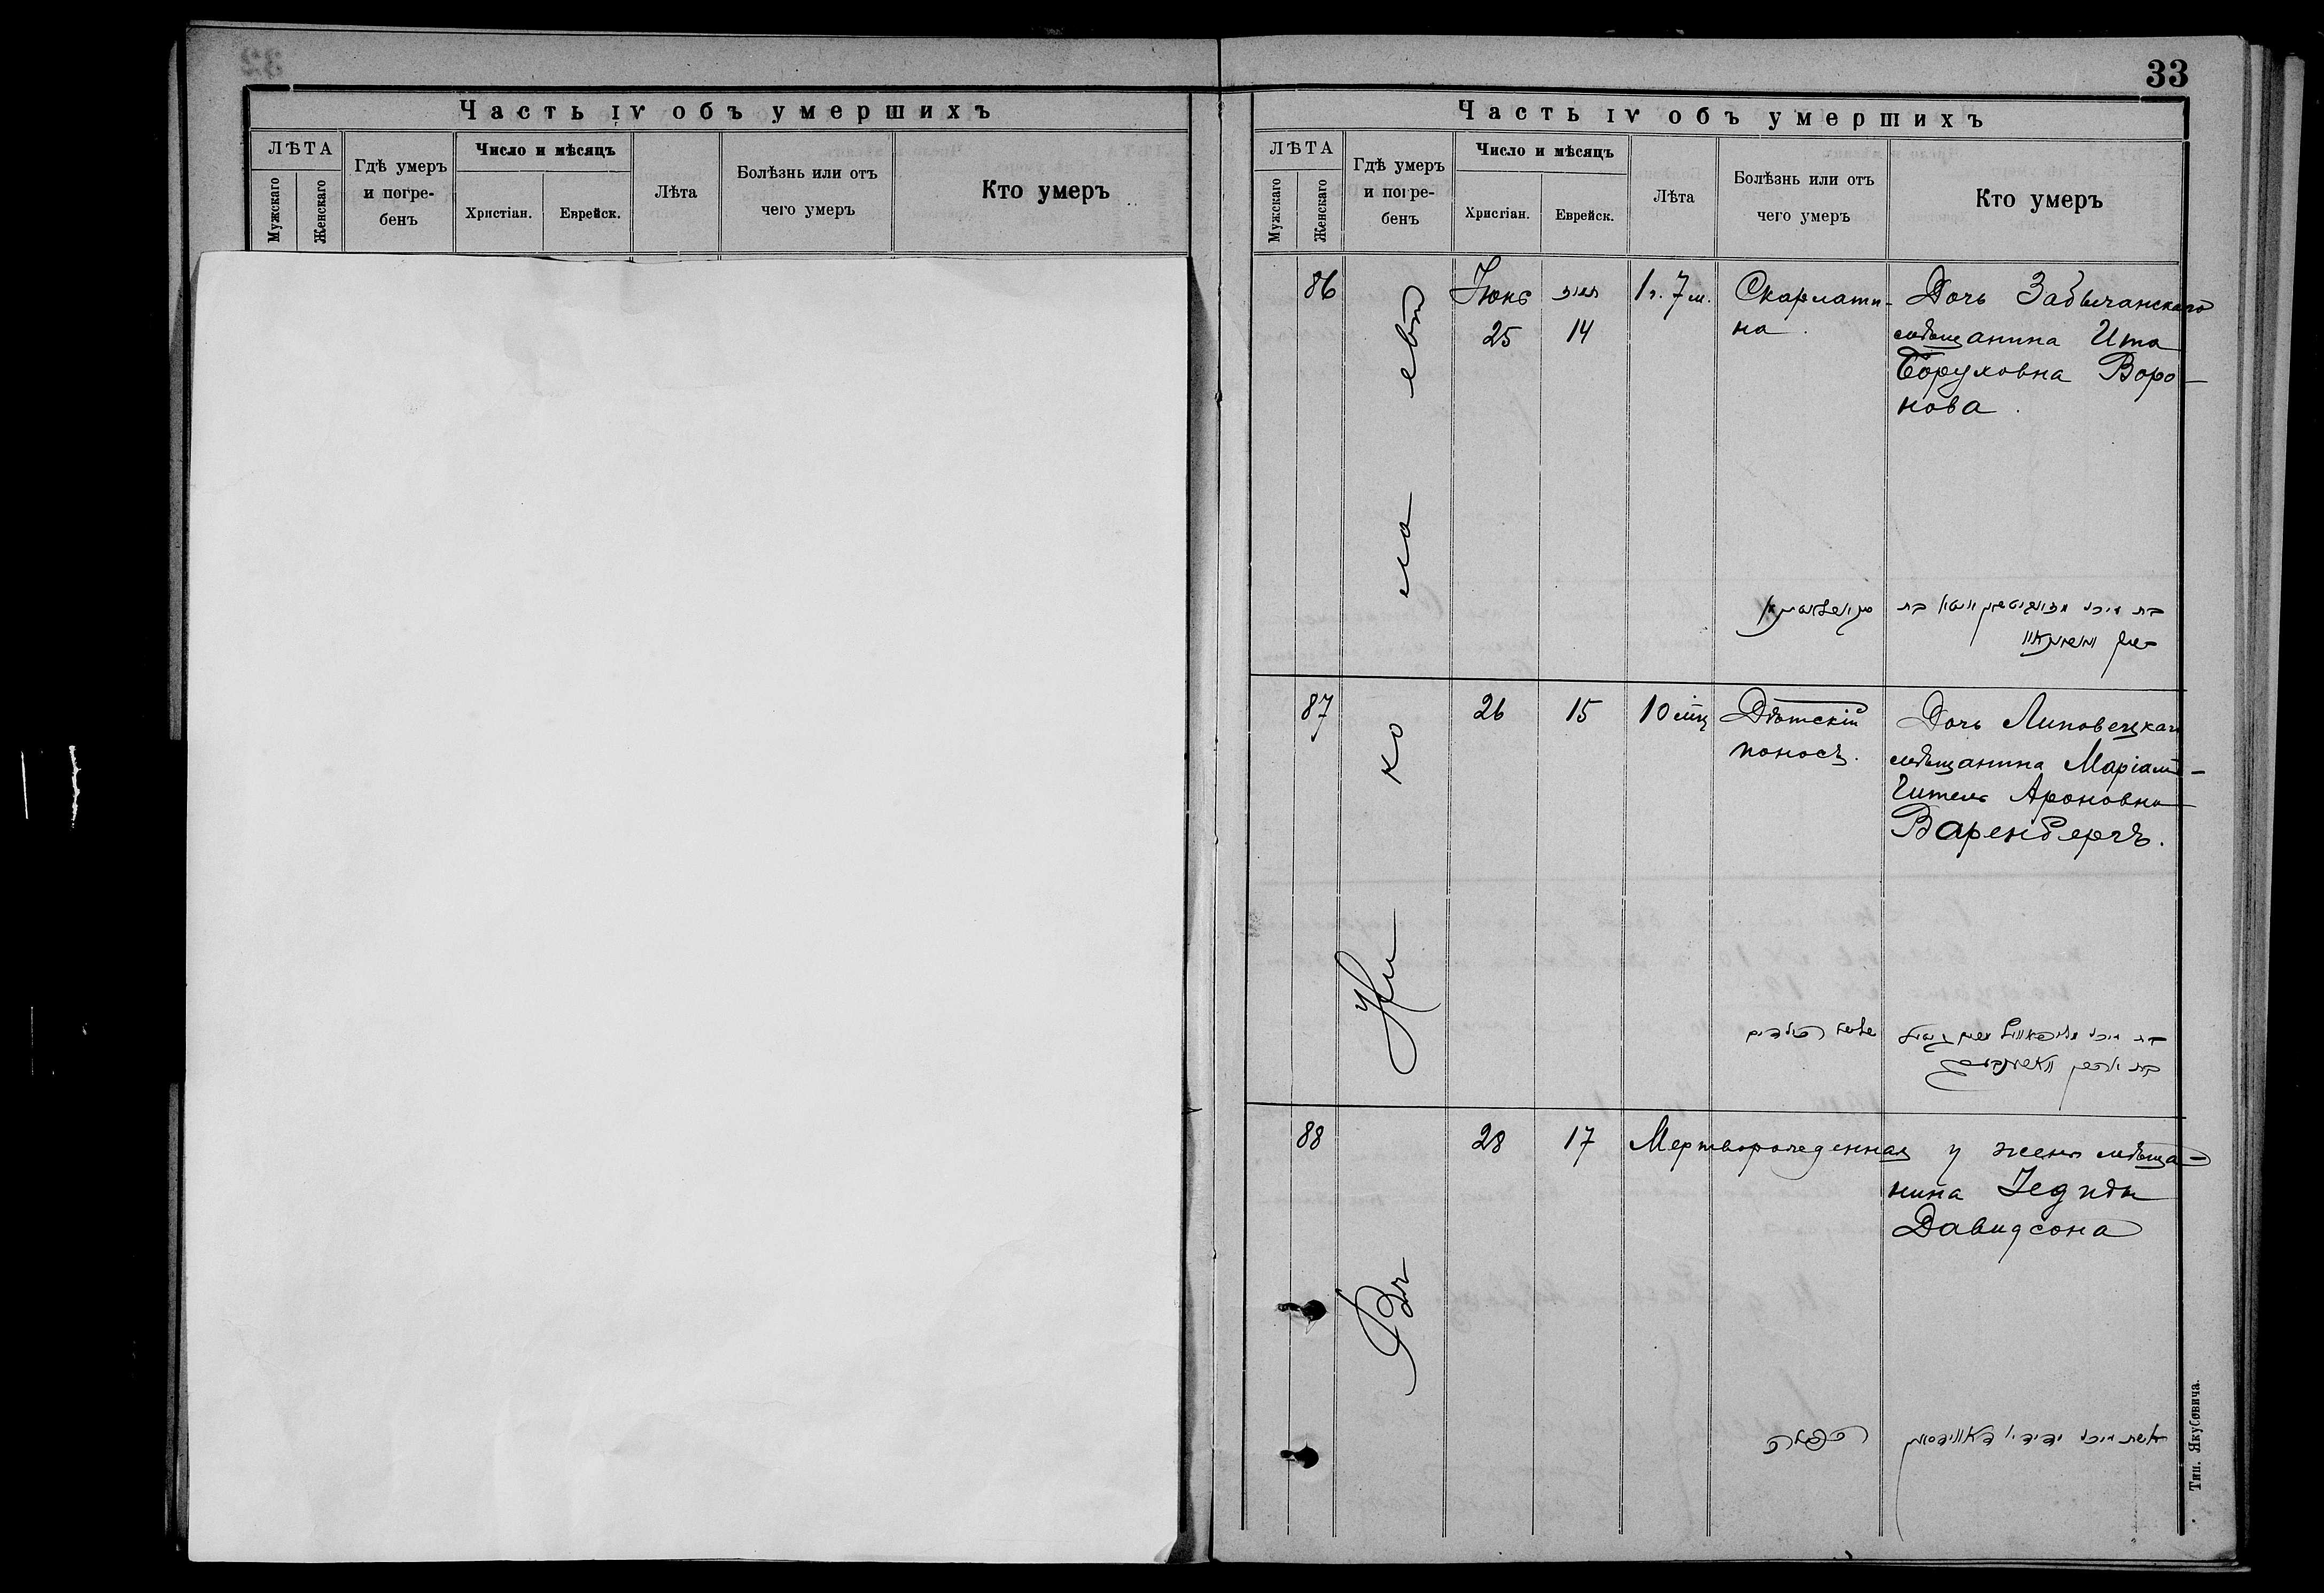 Часть IV объ умершихъ
ЛѢТА
Мужскаго
Женскаго
Гдѣ умеръ
и погре-
бенъ
Число и мѣсяцъ
Христіан.
Еврейск.
Лѣта
Болѣзнь или отъ
чего умеръ
Кто умеръ
33
Часть IV объ умершихъ
ЛѢТА
Мужскаго
Женскаго
Гдѣ умеръ
и погре-
бенъ
Число и мѣсяцъ
Христіан.
Еврейск.
Лѣта
Болѣзнь или отъ
чего умеръ
Кто умеръ
86
Іюнь
25
14
1 г. 7 м.
Скарлати-
на.
Дочь Забычанскаго
мѣщанина Ита
Боруховна Воро-
нова.
87
26
15
10 мѣц
Дѣтскій
поносъ.
Дочь Липовецкаго
мѣщанина Маріамъ-
Гитель Ароновна
Варенбергъ.
שלשול הילדים
88
28
17
Мертворожденная у жены мѣща-
нина Іедиды
Давидсона
Въ г Ни ко ла евѣ
Тип. Якубовича.